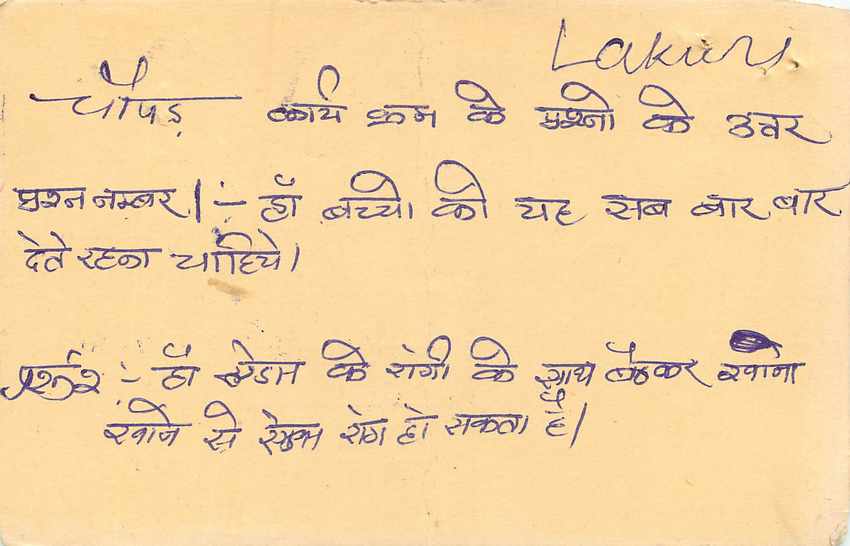 Lakury
चौपड़ कार्य क्रम के प्रश्नो के उत्तर
प्रश्न नम्बर 1 :- हाँ बच्चो को यह सब बार बार
देते रहना चाहिये।
:- हाँ के रोगी के साथ बैठकर खाना
खाने से रोग हो सकता है।